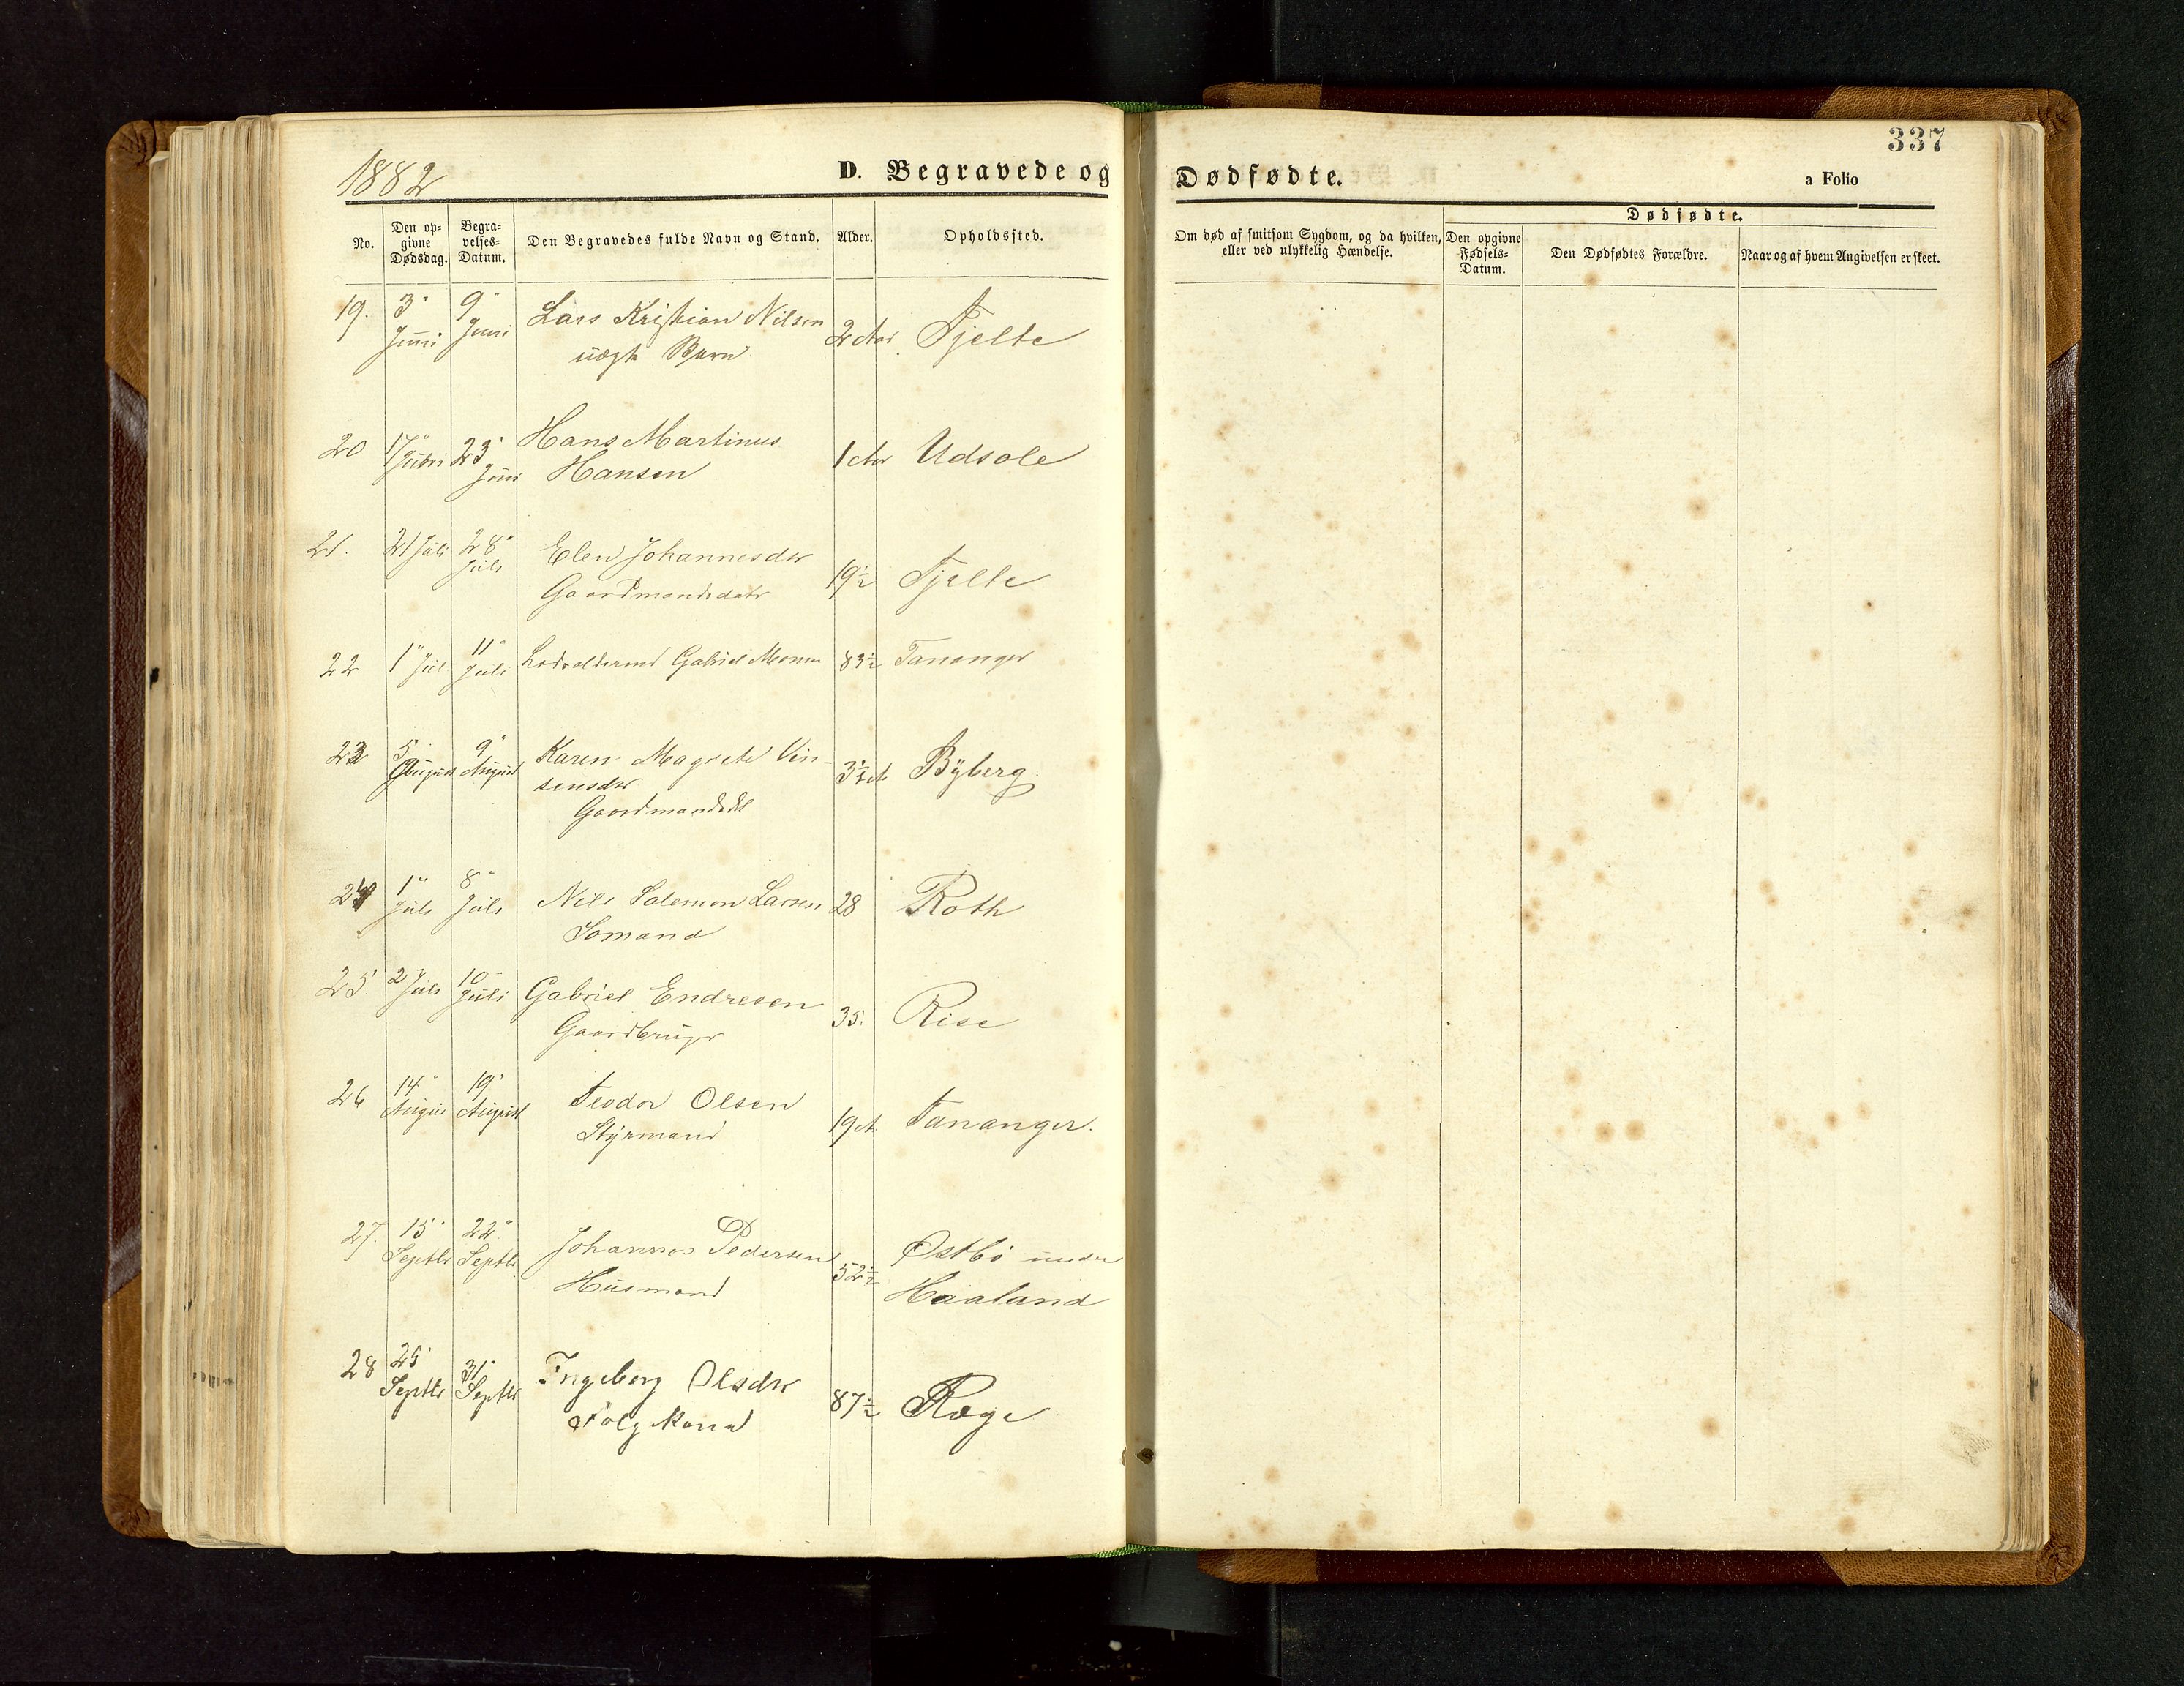 337
1882
D. Begravede og Dødfødte.
a Folio
No.
Den opgivne Dødsdag.
Begravelses-Datum.
Den Begravedes fulde Navn og Stand.
Alder.
Opholdssted.
Om død af smitsom Sygdom, og da hvilken, eller ved ulykkelig Hændelse.
Dødfødte.
Den opgivne Fødsels-Datum.
Den Dødfødtes Forældre.
Naar og af hvem Angivelsen er skeet.
19. 3" Juni 9" Juni Lars Kristian Nilsen 2 Aar Tjelte
uægte Barn
20 17" 23" Juni Hans Martinus 1 Aar Udsole
Hansen
21. 21 Juli 28" Juli Elen Johannesdtr 19½ Tjelte
Gaardmandsdatr
22 1" Juli 11" Juli Lodsoldermd Gabriel Monsen 83½ Tananger
23 5" August 9" August Karen Magrete Vin-
sensdtr
Gaardmandsdtr
Byberg
24 1" Juli 8" Juli Nils Salemon Larsen 28 Roth
Sømand
25. 2" Juli 10" Juli Gabriel Endresen 35. Rise
Gaardbruger
26 14" August 19" August Teodor Olsen 19 A Tananger.
Styrmand
27. 15" Septbr 22" Septbr Johannes Pedersen 52½ Østbø under
Husmand Haaland
28 25" Septbr 31" Septbr Ingeborg Olsdtr 87½ Ræge
Folgkone